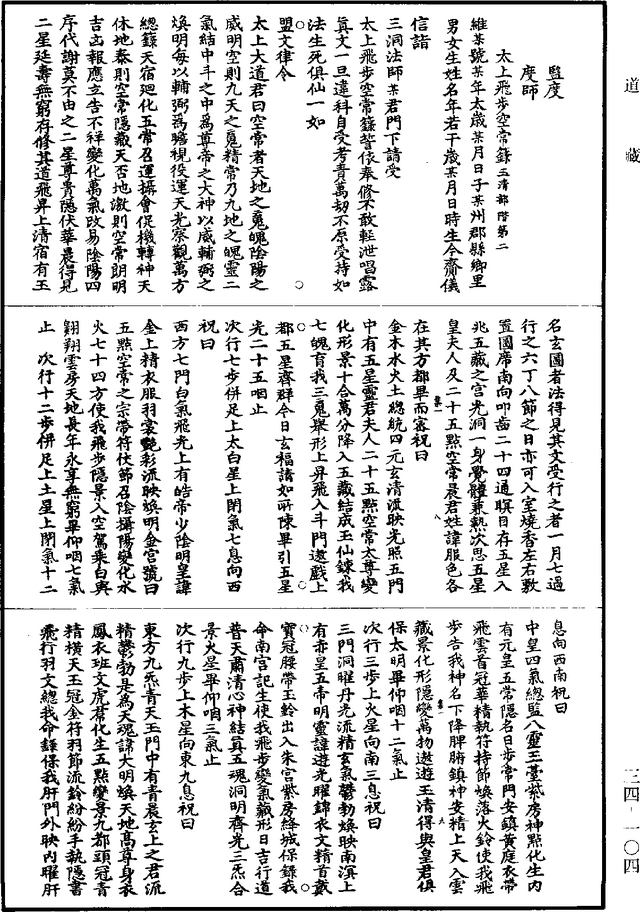 道藏
監度
度師
太上飛步空常籙 玉清部階第二
維某號某年太歲某月日子某州郡縣鄉里
男女生姓名年若干歲某月日時生今齋儀
信詣
三洞法師某君門下請受
太上飛步空常籙誓依奉修不敢輕泄唱露
真文一旦違科自受考責萬劫不原受持如
法生死俱仙一如
盟文律令
太上大道君曰空常者天地之魂魄陰陽之
威明空則九天之魂精常乃九地之魄靈二
氣結中斗之中為尊帝之大神以威輔弼之
煥明每以輔弼為瞻視役運天光察觀萬方
總籙天宿迴化五常召運攝會促機轉神天
休地泰則空常隱藏天否地激則空常朗明
吉凶報應立告不祥變化萬氣改易陰陽四
序代謝莫不由之二星尊貴隱伏華晨得見
二星延壽無窮存修其道飛昇上清宿有玉
名玄圖者法得見其文受行之者一月七過
行之六丁八節之日亦可入室燒香左右敷
置圖席南向叩齒二十四通瞑目存五星入
兆五藏之宮光洞一身覺體兼熱次思五星
皇夫人及二十五點空常晨君姓諱服色各
在其方都畢而密祝曰
金木水火土總統四元玄清流映光照五門
中有五星靈君夫人二十五點空常太尊變
化形景十合萬分降入五藏結成玉仙鍊我
七魄育我三魂舉形上昇飛入斗門遨戲上
都五星齊群今日玄福請如所陳畢引五星
光二十五咽止
次行七步併足上太白星上閉氣七息向西
祝曰
西方七門白氣飛光上有皓帝少陰明皇諱
金上精衣服羽裳艷彩流映煥明金宮號曰
五點空常之宗帶符仗節召陰攝陽變化水
火七十四方使我飛步隱景入空駕乘白輿
翱翔雲房天地長年永享無窮畢仰咽七氣
止　次行十二步併足上土星上閉氣十二
息向西南祝曰
中皇四氣總監八靈玉臺紫房神點化生內
有元皇五常隱名日步常門安鎮黃庭衣帶
飛雲首冠華精執符持節煥落火鈴使我飛
步告我神名下降脾腑鎮神安精上天入雲
藏景化形隱變萬物遨遊玉清得與皇君俱
保太明畢仰咽十二氣止
次行三步上火星向南三息祝曰
三門洞曜丹光流精玄氣鬱勃煥映南溟上
有赤皇五帝明靈諱遊光曜錦衣文精首戴
寶冠腰帶玉鈴出入朱宮紫房絳城保錄我
命南宮記生使我飛步變氣藏形日吉行道
普天肅清心神結真五魂洞明齊光三炁合
景火星畢仰咽三氣止
次行九步上木星向東九息祝曰
東方九炁青天玉門中有青晨玄上之君流
精鬱勃是為天魂諱大明煥天地高尊身衣
鳳衣班文虎裙化生五點變景九都頭冠青
精橫天玉冠金符羽節流鈴紛紛手執隱書
飛行羽文總我命錄保我肝門外映內曜肝
三四-一〇四